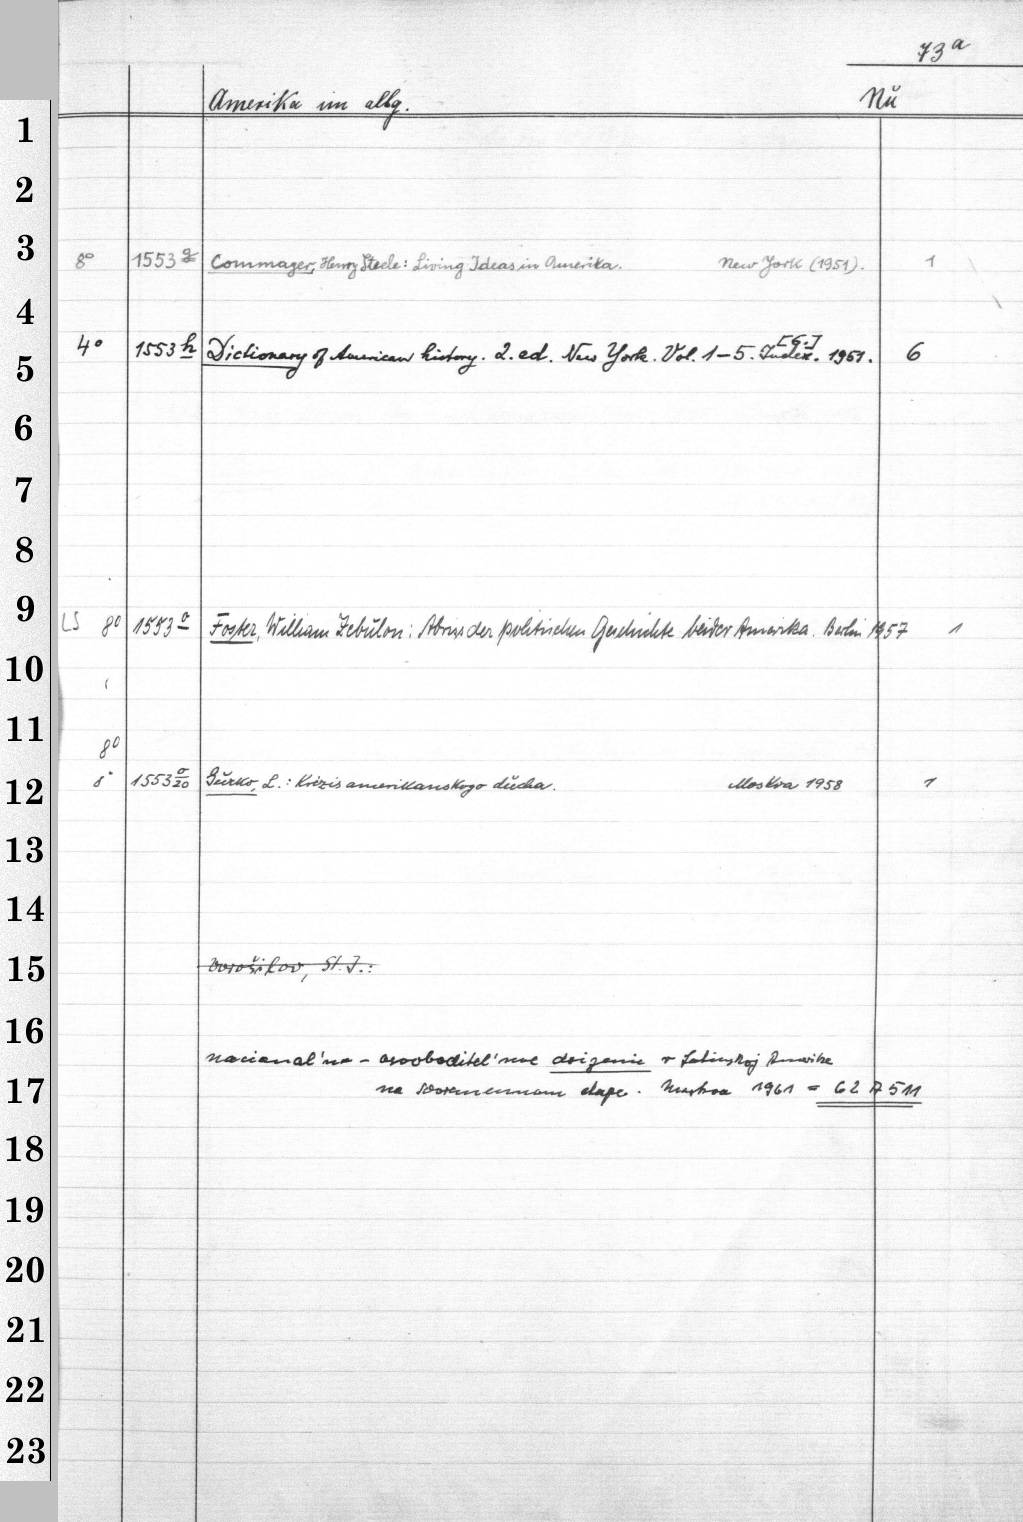 73a
Amerika im allg. Nŭ
1
2
3
8° 1553 g Commager, Henry Steele: Living Ideas in Amerika. New York (1951). 1
4
4° 1553 h Dictionary of American history. 2. ed. New York. Vol. 1-5. [6.] Index. 1951. 6
5
6
7
8
9
LS 8° 1553 o Foster, William Zebŭlon: Abriss der politischen Geschichte beider Amerika. Berlin 1957 1
10
11
8°
12
1553 o/20 Gŭrko, L.: Krizis amerikanskogo dŭcha. Moskva 1958 1
13
14
15
Vorošilov, St. J.:
16
nacional'no-osvoboditel'noe dviženie v Latinskoj Amerike
17
na sovremennom etape. Moskva 1961 = 62 A 511
18
19
20
21
22
23